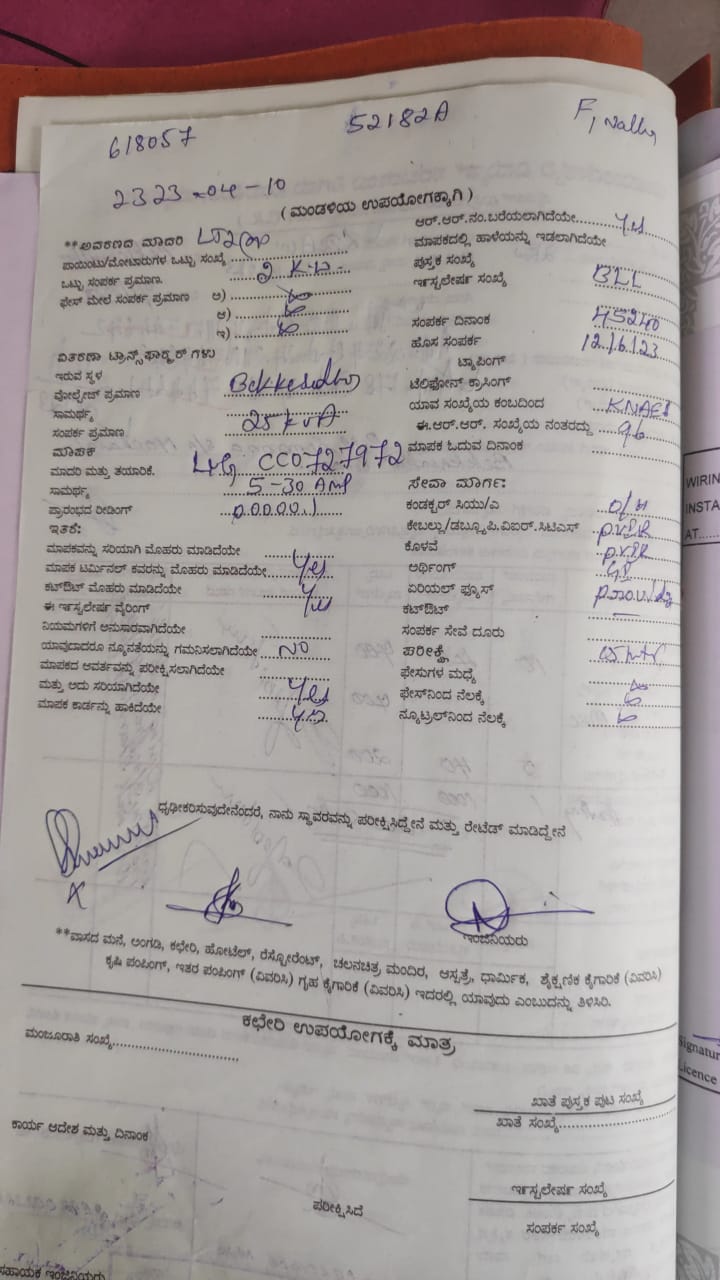 618057
52182A
2323-04-10
(ಮಂಡಳಿಯ ಉಪಯೋಗಕ್ಕಾಗಿ)
**ಆವರಣದ ಮಾದರಿ
ಪಾಯಿಂಟು/ಮೋಟಾರುಗಳ ಒಟ್ಟು ಸಂಖ್ಯೆ
ಒಟ್ಟು ಸಂಪರ್ಕ ಪ್ರಮಾಣ. 2 K.W.
ಫೇಸ್ ಮೇಲೆ ಸಂಪರ್ಕ ಪ್ರಮಾಣ ಅ)
ಆ)
ಇ)
ವಿತರಣಾ ಟ್ರಾನ್ಸ್‌ಫಾರ್ಮರ್ ಗಳು
ಇರುವ ಸ್ಥಳ
ವೋಲ್ಟೇಜ್ ಪ್ರಮಾಣ
ಸಾಮರ್ಥ್ಯ 25 KVA
ಸಂಪರ್ಕ ಪ್ರಮಾಣ
ಮಾಪಕ
ಮಾದರಿ ಮತ್ತು ತಯಾರಿಕೆ. L&G CC0727972
ಸಾಮರ್ಥ್ಯ 5-30 Amp
ಪ್ರಾರಂಭದ ರೀಡಿಂಗ್ 00000.1
ಇತರೆ:
ಮಾಪಕವನ್ನು ಸರಿಯಾಗಿ ಮೊಹರು ಮಾಡಿದೆಯೇ
ಮಾಪಕ ಟರ್ಮಿನಲ್ ಕವರನ್ನು ಮೊಹರು ಮಾಡಿದೆಯೇ Yes
ಕಟ್‌ಔಟ್ ಮೊಹರು ಮಾಡಿದೆಯೇ Yes
ಈ ಇನ್ಸ್ಟಲೇಷನ್ ವೈರಿಂಗ್
ನಿಯಮಗಳಿಗೆ ಅನುಸಾರವಾಗಿದೆಯೇ
ಯಾವುದಾದರೂ ನ್ಯೂನತೆಯನ್ನು ಗಮನಿಸಲಾಗಿದೆಯೇ NO
ಮಾಪಕದ ಆವರ್ತವನ್ನು ಪರೀಕ್ಷಿಸಲಾಗಿದೆಯೇ
ಮತ್ತು ಅದು ಸರಿಯಾಗಿದೆಯೇ Yes
ಮಾಪಕ ಕಾರ್ಡನ್ನು ಹಾಕಿದೆಯೇ Yes
ಆರ್.ಆರ್.ನಂ.ಬರೆಯಲಾಗಿದೆಯೇ Yes
ಮಾಪಕದಲ್ಲಿ ಹಾಳೆಯನ್ನು ಇಡಲಾಗಿದೆಯೇ
ಪುಸ್ತಕ ಸಂಖ್ಯೆ
ಇನ್ಸ್ಟಲೇಷನ್ ಸಂಖ್ಯೆ BLL
ಸಂಪರ್ಕ ದಿನಾಂಕ 45240
ಹೊಸ ಸಂಪರ್ಕ 12/6/23
ಟ್ಯಾಪಿಂಗ್
ಟೆಲಿಫೋನ್ ಕ್ರಾಸಿಂಗ್
ಯಾವ ಸಂಖ್ಯೆಯ ಕಂಬದಿಂದ
ಈ.ಆರ್.ಆರ್. ಸಂಖ್ಯೆಯ ನಂತರದ್ದು 96
ಮಾಪಕ ಓದುವ ದಿನಾಂಕ
ಸೇವಾ ಮಾರ್ಗ:
ಕಂಡಕ್ಟರ್ ಸಿಯು/ಎ O/H
ಕೇಬಲ್ಲು/ಡಬ್ಲ್ಯೂ.ಪಿ.ವಿಐರ್.ಸಿಟಿಎಸ್
ಕೊಳವೆ
ಅರ್ಥಿಂಗ್ GI
ಏರಿಯಲ್ ಫ್ಯೂಸ್
ಕಟ್‌ಔಟ್
ಸಂಪರ್ಕ ಸೇವೆ ದೂರು
ಪರೀಕ್ಷೆ
ಫೇಸುಗಳ ಮಧ್ಯೆ
ಫೇಸ್‌ನಿಂದ ನೆಲಕ್ಕೆ
ನ್ಯೂಟ್ರಲ್‌ನಿಂದ ನೆಲಕ್ಕೆ
ಧೃಢೀಕರಿಸುವುದೇನೆಂದರೆ, ನಾನು ಸ್ಥಾವರವನ್ನು ಪರೀಕ್ಷಿಸಿದ್ದೇನೆ ಮತ್ತು ರೇಟೆಡ್ ಮಾಡಿದ್ದೇನೆ
ಇಂಜಿನಿಯರು
**ವಾಸದ ಮನೆ, ಅಂಗಡಿ, ಕಛೇರಿ, ಹೋಟೆಲ್, ರೆಸ್ಟೋರೆಂಟ್, ಚಲನಚಿತ್ರ ಮಂದಿರ, ಆಸ್ಪತ್ರೆ, ಧಾರ್ಮಿಕ, ಶೈಕ್ಷಣಿಕ ಕೈಗಾರಿಕೆ (ವಿವರಿಸಿ)
ಕೃಷಿ ಪಂಪಿಂಗ್, ಇತರ ಪಂಪಿಂಗ್ (ವಿವರಿಸಿ) ಗೃಹ ಕೈಗಾರಿಕೆ (ವಿವರಿಸಿ) ಇದರಲ್ಲಿ ಯಾವುದು ಎಂಬುದನ್ನು ತಿಳಿಸಿರಿ.
ಕಛೇರಿ ಉಪಯೋಗಕ್ಕೆ ಮಾತ್ರ
ಮಂಜೂರಾತಿ ಸಂಖ್ಯೆ
ಖಾತೆ ಪುಸ್ತಕ ಪುಟ ಸಂಖ್ಯೆ
ಖಾತೆ ಸಂಖ್ಯೆ
ಕಾರ್ಯ ಆದೇಶ ಮತ್ತು ದಿನಾಂಕ
ಇನ್ಸ್ಟಲೇಷನ್ ಸಂಖ್ಯೆ
ಪರೀಕ್ಷಿಸಿದೆ
ಸಂಪರ್ಕ ಸಂಖ್ಯೆ
ಸಹಾಯಕ ಇಂಜಿನಿಯರು
WIRIN
INSTA
AT
Signatur
Licence